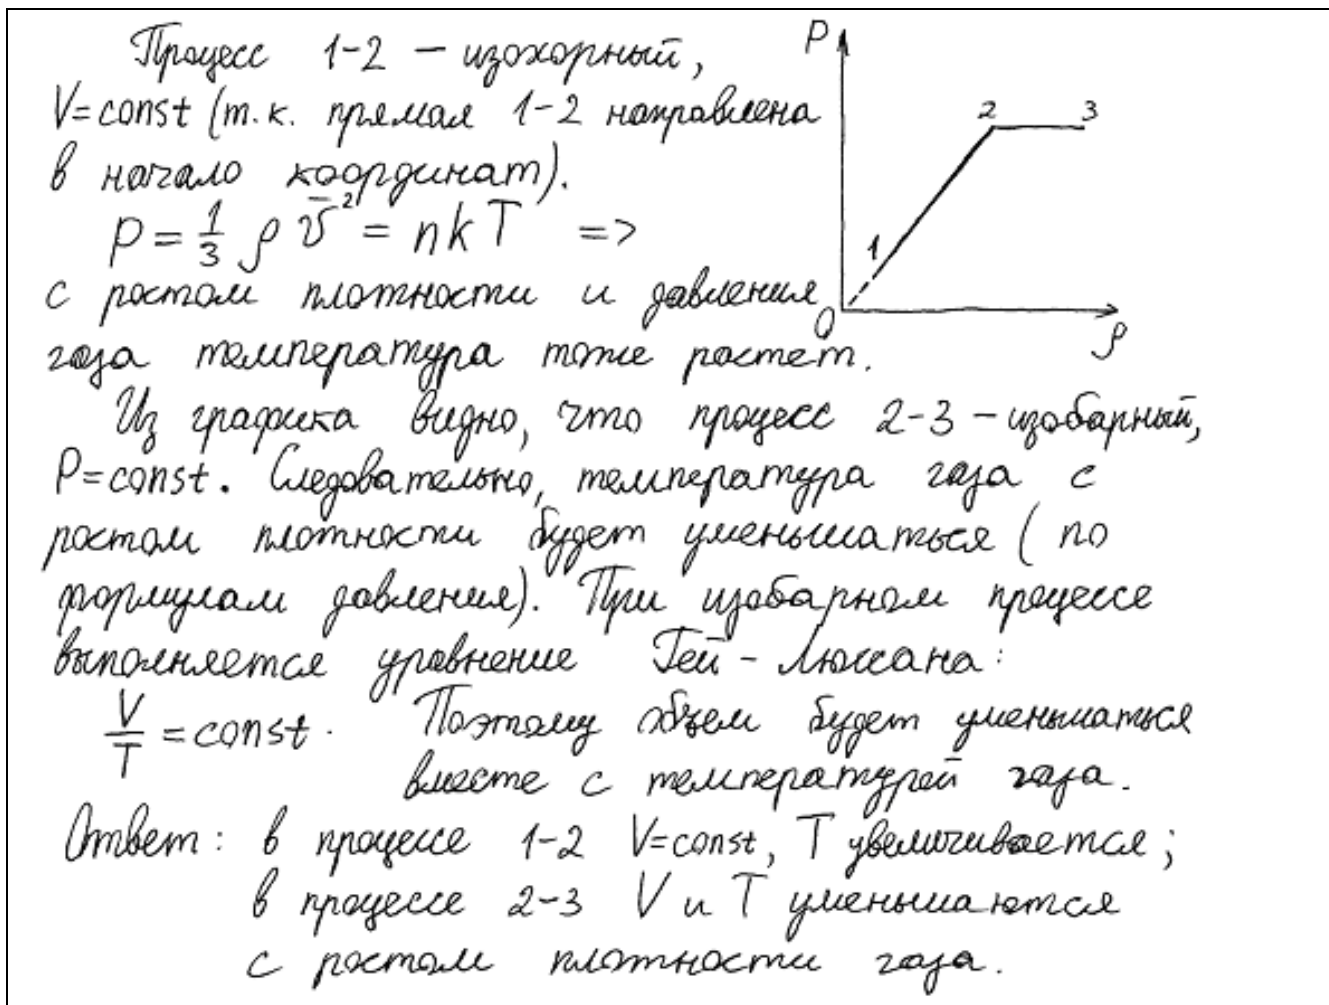 Процесс 1-2 – изохорный,
V=const (т.к. прямая 1-2 направлена
в начало координат).
p = 1/3 ρ v̄² = nkT =>
с ростом плотности и давления
газа температура тоже растет.
P
2 3
1
0
ρ
Из графика видно, что процесс 2-3 – изобарный,
P=const. Следовательно, температура газа с
ростом плотности будет уменьшаться (по
формулам давления). При изобарном процессе
выполняется уравнение Гей-Люссака:
V/T = const. Поэтому объем будет уменьшаться
вместе с температурой газа.
Ответ: в процессе 1-2 V=const, T увеличивается;
в процессе 2-3 V и T уменьшаются
с ростом плотности газа.